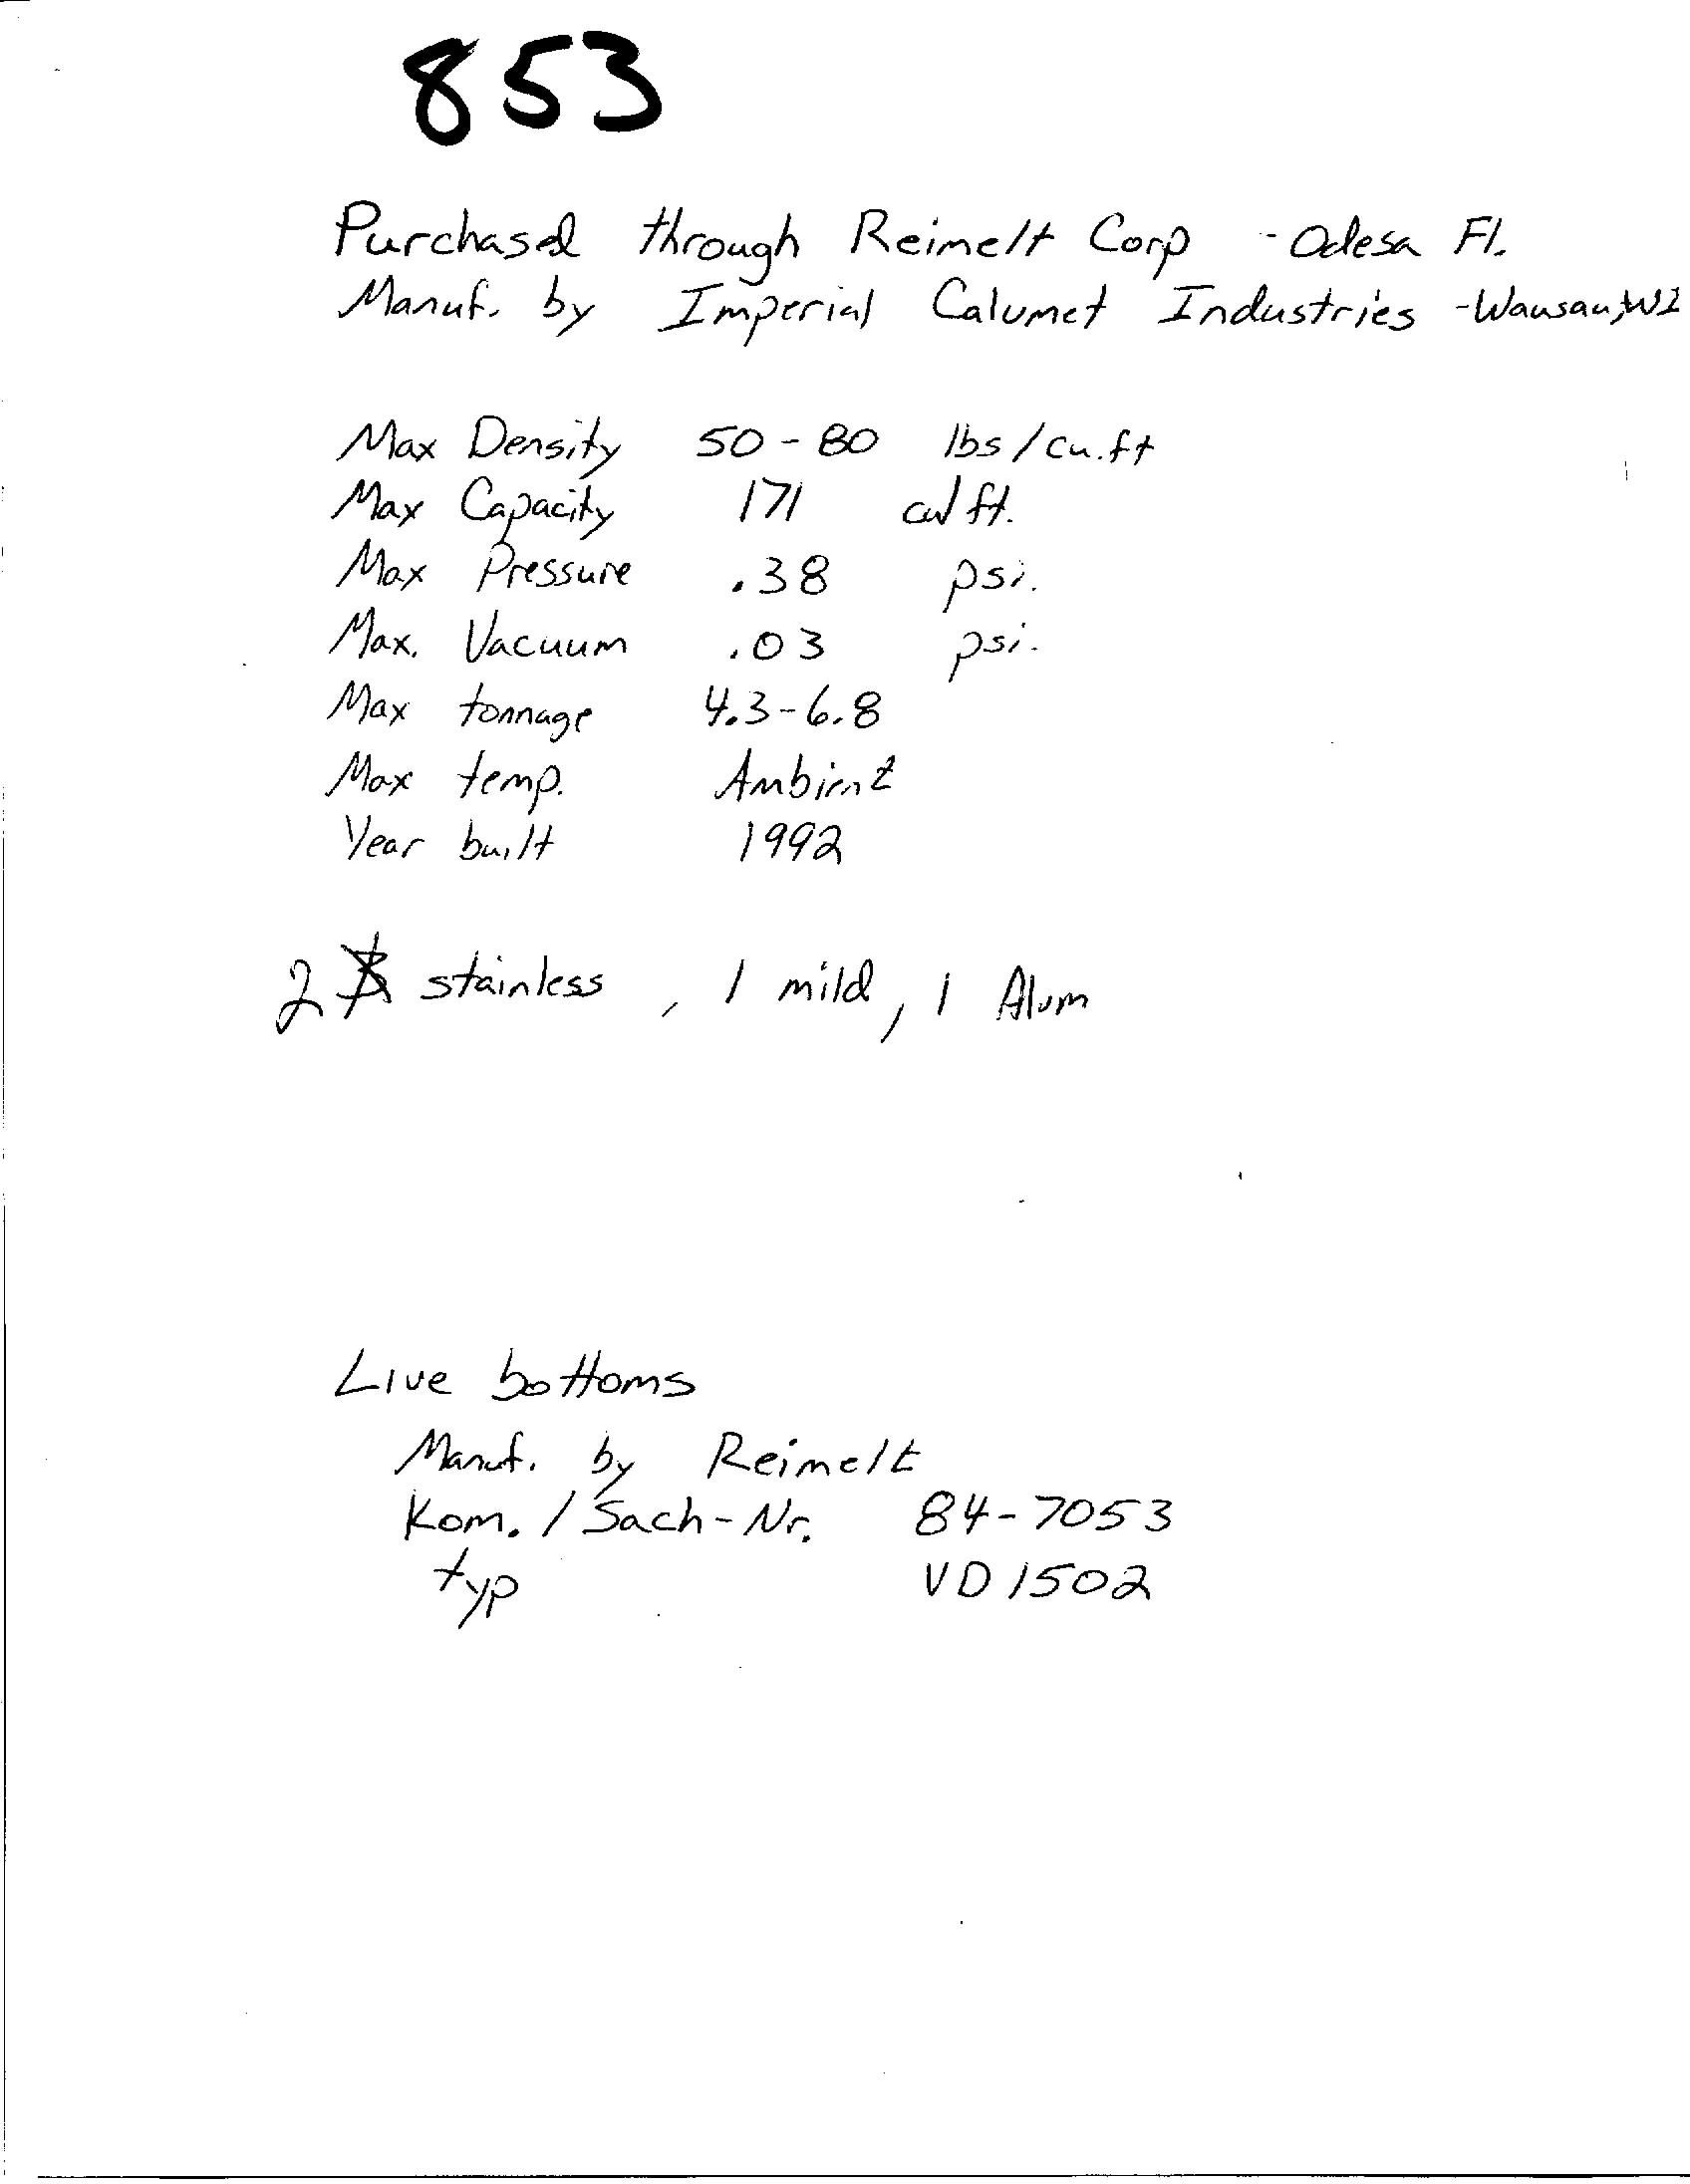 853
Purchased through Reimelt Corp - Odesa Fl.
Manuf. by Imperial Calumet Industries - Wausau, WI
Max Density 50-80 lbs/cu.ft
Max Capacity 171 cu/ft.
Max Pressure .38 psi.
Max. Vacuum .03 psi.
Max tonnage 4.3-6.8
Max temp. Ambient
Year built 1992
2 stainless, 1 mild, 1 Alum
Live bottoms
Manuf. by Reimelt
Kom./Sach-Nr. 84-7053
typ VD1502